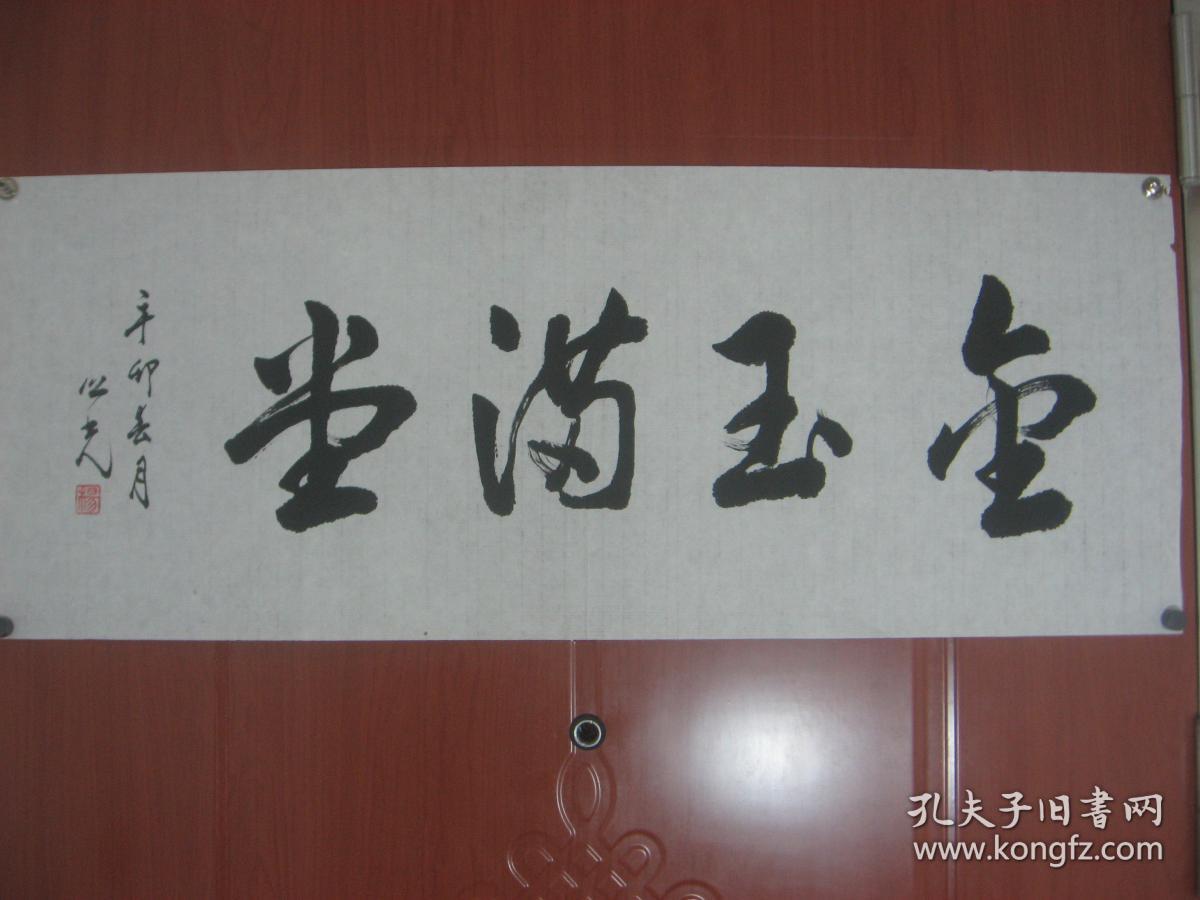 金玉满堂
辛卯春月
孔夫子旧書网
www.kongfz.com